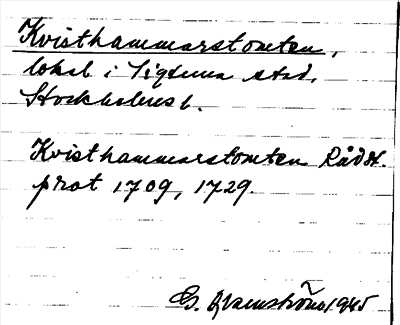 Kvisthammarstomten,
lokal i Sigtuna stad,
Stockholms l.
Kvisthammarstomten Rådst.
prot 1709, 1729.
G. 1945